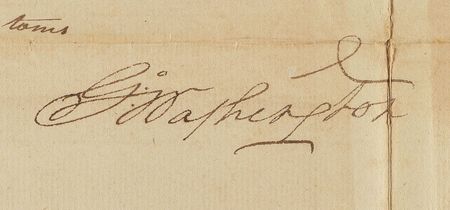 toms
G:Washington